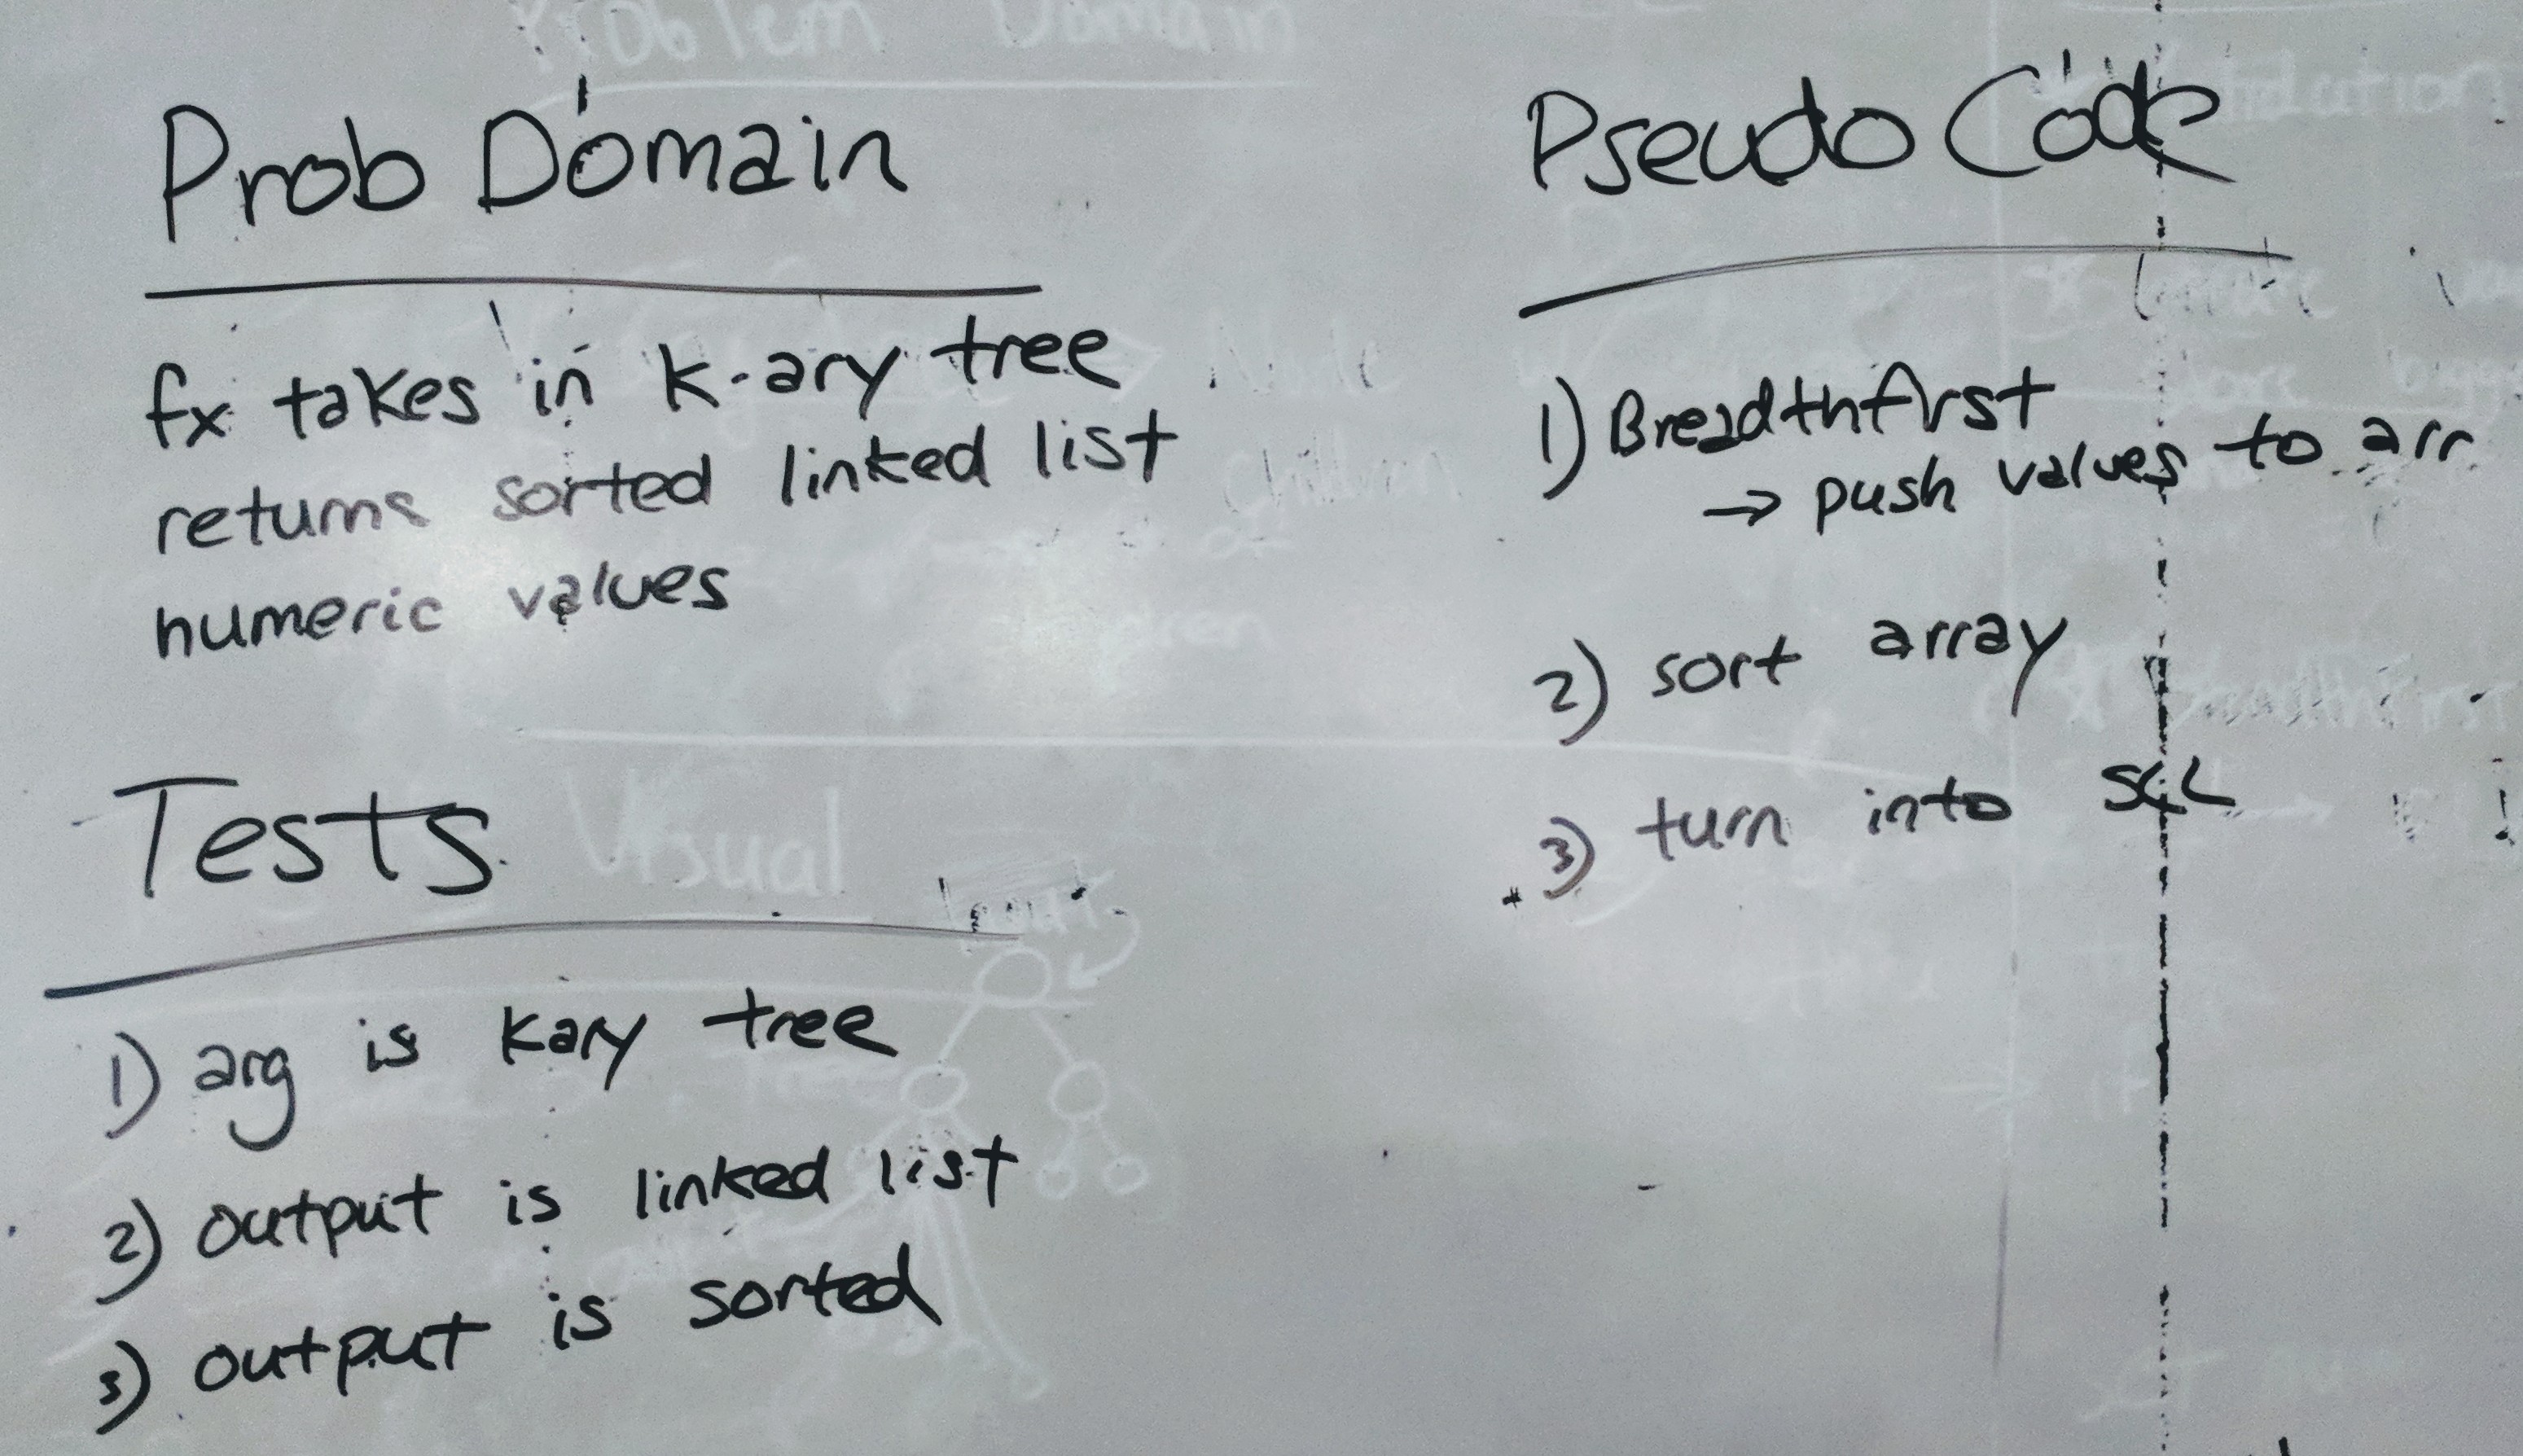 Prob Domain
fx takes in k-ary tree
returns sorted linked list
numeric values
Tests
1) arg is Kary tree
2) output is linked list
3) output is sorted
Pseudo Code
1) Breadthfirst
→ push values to arr
2) sort array
3) turn into SLL
Problem Domain
Visual